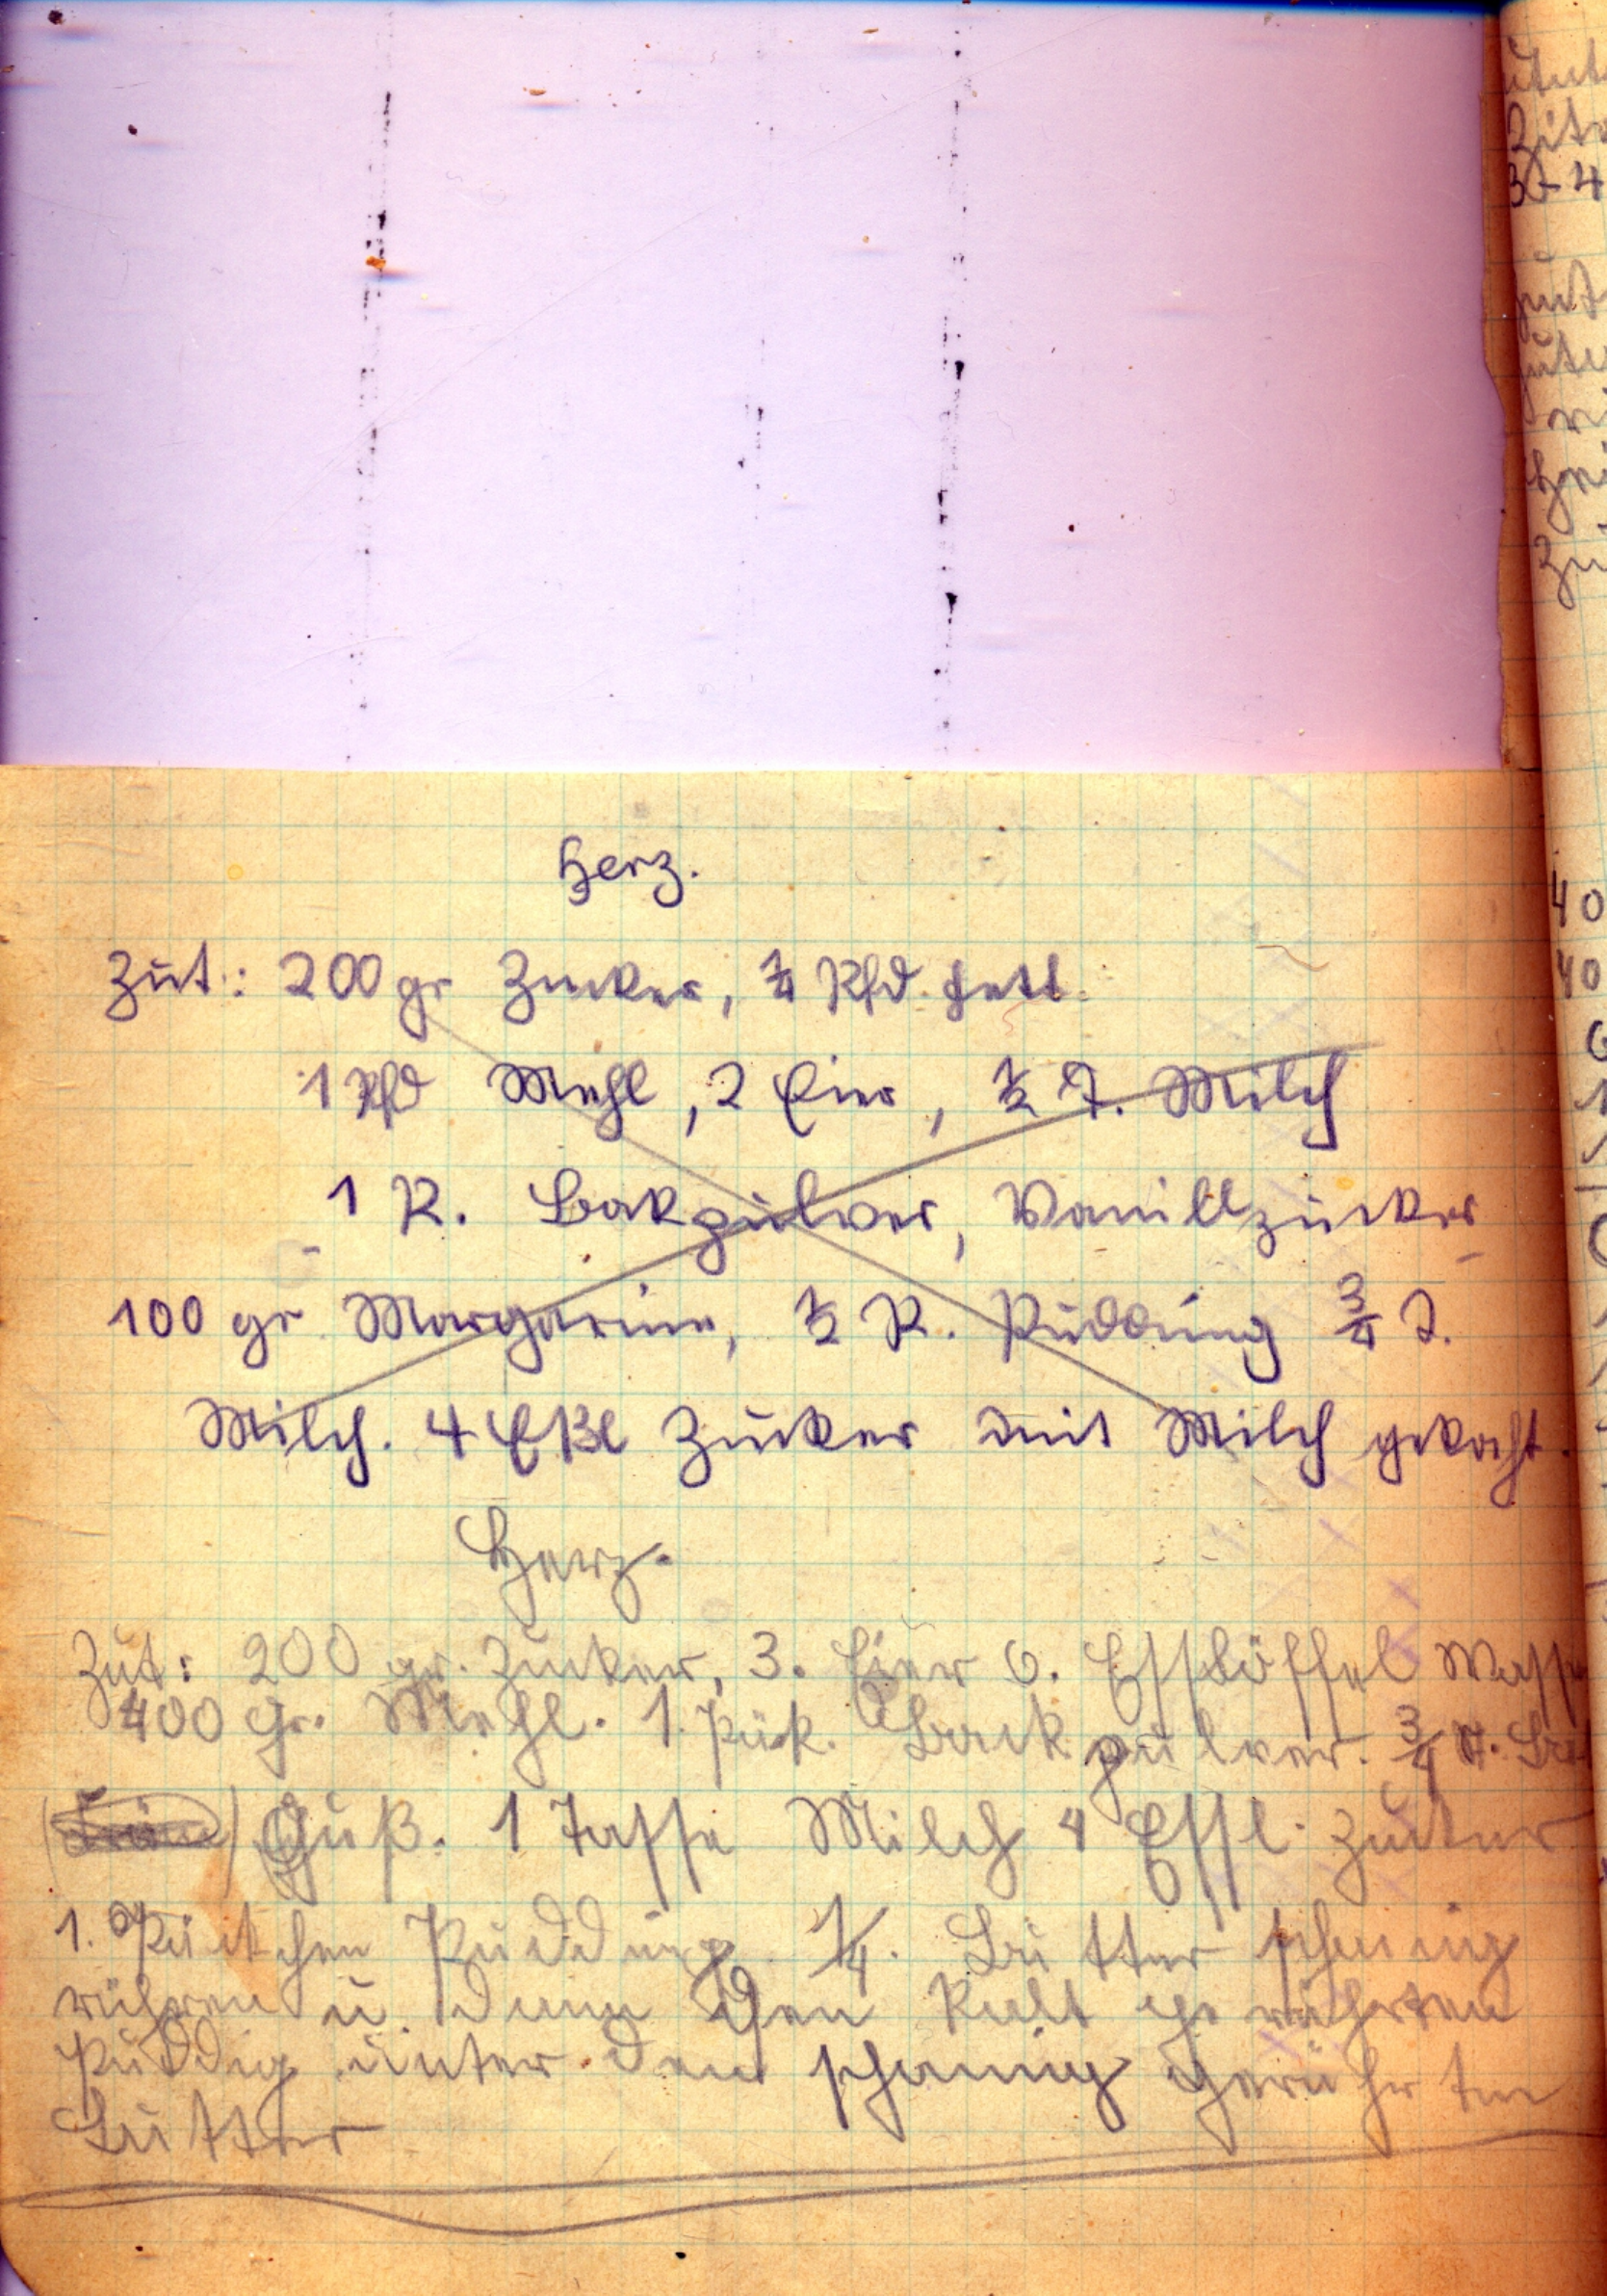 Herz.
Zut.: 200 gr Zucker, ¼ Pfd. Fett.
1 Pfd Mehl, 2 Eier, ½ T. Milch
1 P. Bakpulver, Vanillzucker
100 gr Margarine, ½ P. Pudding ¾ T.
Milch. 4 Eßl Zucker mit Milch gekocht.
Herz.
Zut: 200 gr. Zucker, 3. Eier 6. Esslöffel
400 gr. Mehl. 1. Päk. Backpulver. ¾
Guß. 1 Tasse Milch 4 Essl. Zucker
1. Pudding ¼. Butter schaumig
rühren u. dann den kalt gerührten
Puddig unter den schaumig gerührten
Butter